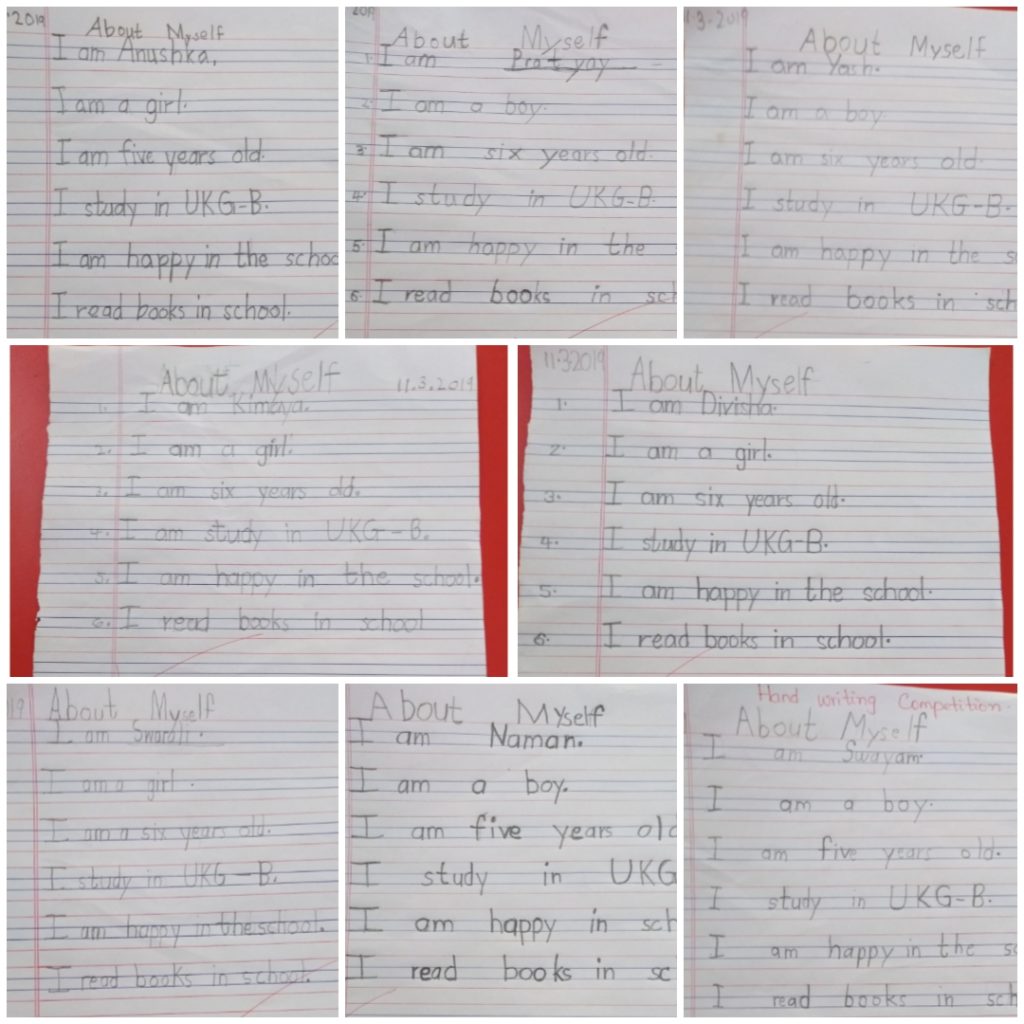 2019
About Myself
I am Anushka,
I am a girl.
I am five years old.
I study in UKG-B.
I am happy in the schoo
I read books in school.
2019
About Myself
1. I am Pratyay
2. I am a boy.
3. I am six years old.
4. I study in UKG-B.
5. I am happy in the
6. I read books in sch
1-3-2019
About Myself
I am Yash.
I am a boy
I am six years old
I study in UKG-B.
I am happy in the s
I read books in sch
About Myself 11.3.2019
1. I am Kimaya.
2. I am a girl.
3. I am six years old.
4. I am study in UKG-B.
5. I am happy in the school.
6. I read books in school
11.3.2019
About Myself
1. I am Divisha.
2. I am a girl.
3. I am six years old.
4. I study in UKG-B.
5. I am happy in the school.
6. I read books in school.
19
About Myself
I am Swarali.
I am a girl.
I am a six years old.
I study in UKG-B.
I am happy in the school.
I read books in school.
About Myself
I am Naman.
I am a boy.
I am five years old
I study in UKG
I am happy in sch
I read books in sc
Hand writing Competition.
About Myself
I am Swayam.
I am a boy.
I am five years old.
I study in UKG-B.
I am happy in the sc
I read books in sch